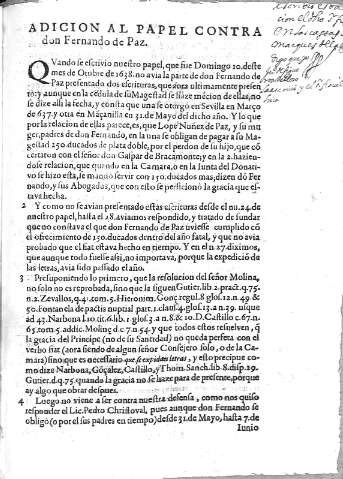 ADICION AL PAPEL CONTRA
don Fernando de Paz.
QVando se escriuio nuestro papel, que fue Domingo 10. deste
mes de Octubre de 1638. no auia la parte de don Fernando de
Paz presentado dos escrituras, que aora vltimamente presen-
tò; y aunque en la cèdula de su Magestad se haze mècion de ellas, no
se dize alli la fecha, y consta que vna se otorgò en Sevilla en Março
de 637. y otra en Maçanilla en 31. de Mayo del dicho año. Y lo que
por la relacion de ellas parece, es, que Lope Nuñez de Paz, y su mu-
ger, padres de don Fernando, en la vna se obligan de pagar a su Ma-
gestad 250. ducados de plata doble, por el perdon de su hijo, que cõ
certaron con el señor don Gaspar de Bracamonte; y en la 2. hazien-
dose relacion, que quando en la Camara, o en la Junta del Donati-
vo se hizo esta, le mandò servir con 150. ducados mas; dizen dõ Fer
nando, y sus Abogados, que con esto se perficionò la gracia que es-
tava hecha.
2 Y como no se avian presentado estas escrituras desde el nu. 24. de
nuestro papel, hasta el 28. aviamos respondido, y tratado de fundar
que no constava el que don Fernando de Paz uviesse cumplido cõ
el ofrecimiento de 250. ducados dentro del año fatal, y que no avia
probado que el fiat estava hecho en tiempo. Y en el n. 27. diximos,
que aunque todo fuesse assi, no importava, porque la expediciõ de
las letras, avia sido passado el año.
3 Presuponiendo lo primero, que la resolucion del señor Molina,
no solo no es reprobada, sino que la siguen Gutier. lib. 2. pract. q. 75.
n. 2. Zevallos, q. 4. com. 5. Hieronim. Gonç. regul. 8. glos. 12. n. 49. &
50. Fontanela de pactis nuptial. part. 1. claus. 4. glos. 13. n. 39. usque
ad 43. Narbona l. 10. tit. 6. lib. 1. glos. 3. n. 8. & 10. D. Castillo c. 67. n.
65. tom. 5. addic. Molin. d. c. 7. n. 54. y que todos estos resuelven, q̃
la gracia del Principe (no de su Santidad) no queda perfeta con el
verbo fiat (aora siendo de algun señor Consejero solo, o de la Ca-
mara) sino que es necessario que se expidan letras, y esto precipue co-
mo dize Narbona, Gõçalez, Castillo, y Thom. Sanch. lib. 8. disp. 29.
Gutier. d. q. 75. quando la gracia no se haze para de presente, porque
ay algo que obrar despues.
4 Luego no viene a ser contra nuestra defensa, como nos quiso
responder el Lic. Pedro Christoval, pues aunque don Fernando se
obligò (o por sus padres en tiempo) desde 31. de Mayo, hasta 7. de
Iunio